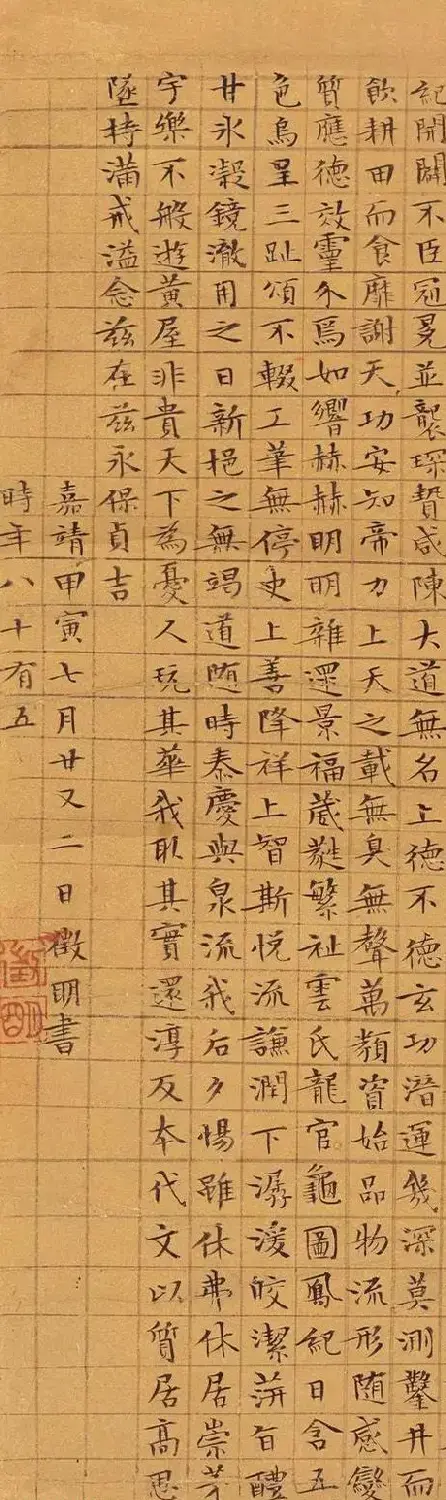 紀開闢不臣冠冕並襲琛贄咸陳大道無名上德不德玄功潛運幾深莫測鑿井而
飲耕田而食靡謝天功安知帝力上天之載無臭無聲萬類資始品物流形随感變
質應德效靈介焉如響赫赫明明雜遝景福葳蕤繁祉雲氏龍官龜圖鳳紀日含五
色烏呈三趾頌不輟工筆無停史上善降祥上智斯悅流謙潤下潺湲皎潔蓱旨醴
甘氷凝鏡澈用之日新挹之無竭道随時泰慶與泉流我后夕惕雖休弗休居崇茅
宇樂不般遊黃屋非貴天下為憂人玩其華我取其實還淳反本代文以質居高思
墜持滿戒溢念兹在兹永保貞吉
嘉靖甲寅七月廿又二日徵明書
時年八十有五
徵明